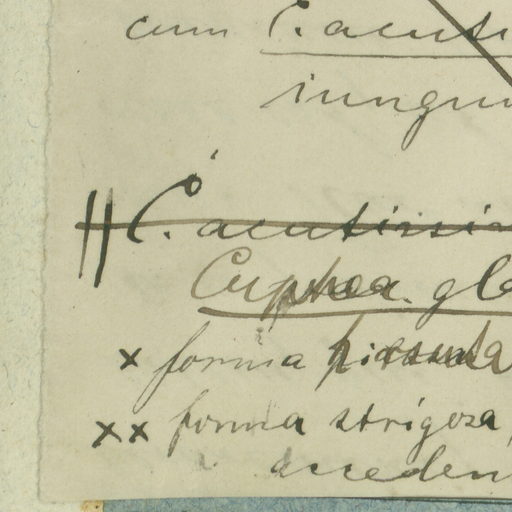 cum C. acuti
iungun
C. acutissi
Cuphea gl
× forma hirsuta
×× forma strigosa,
acceden